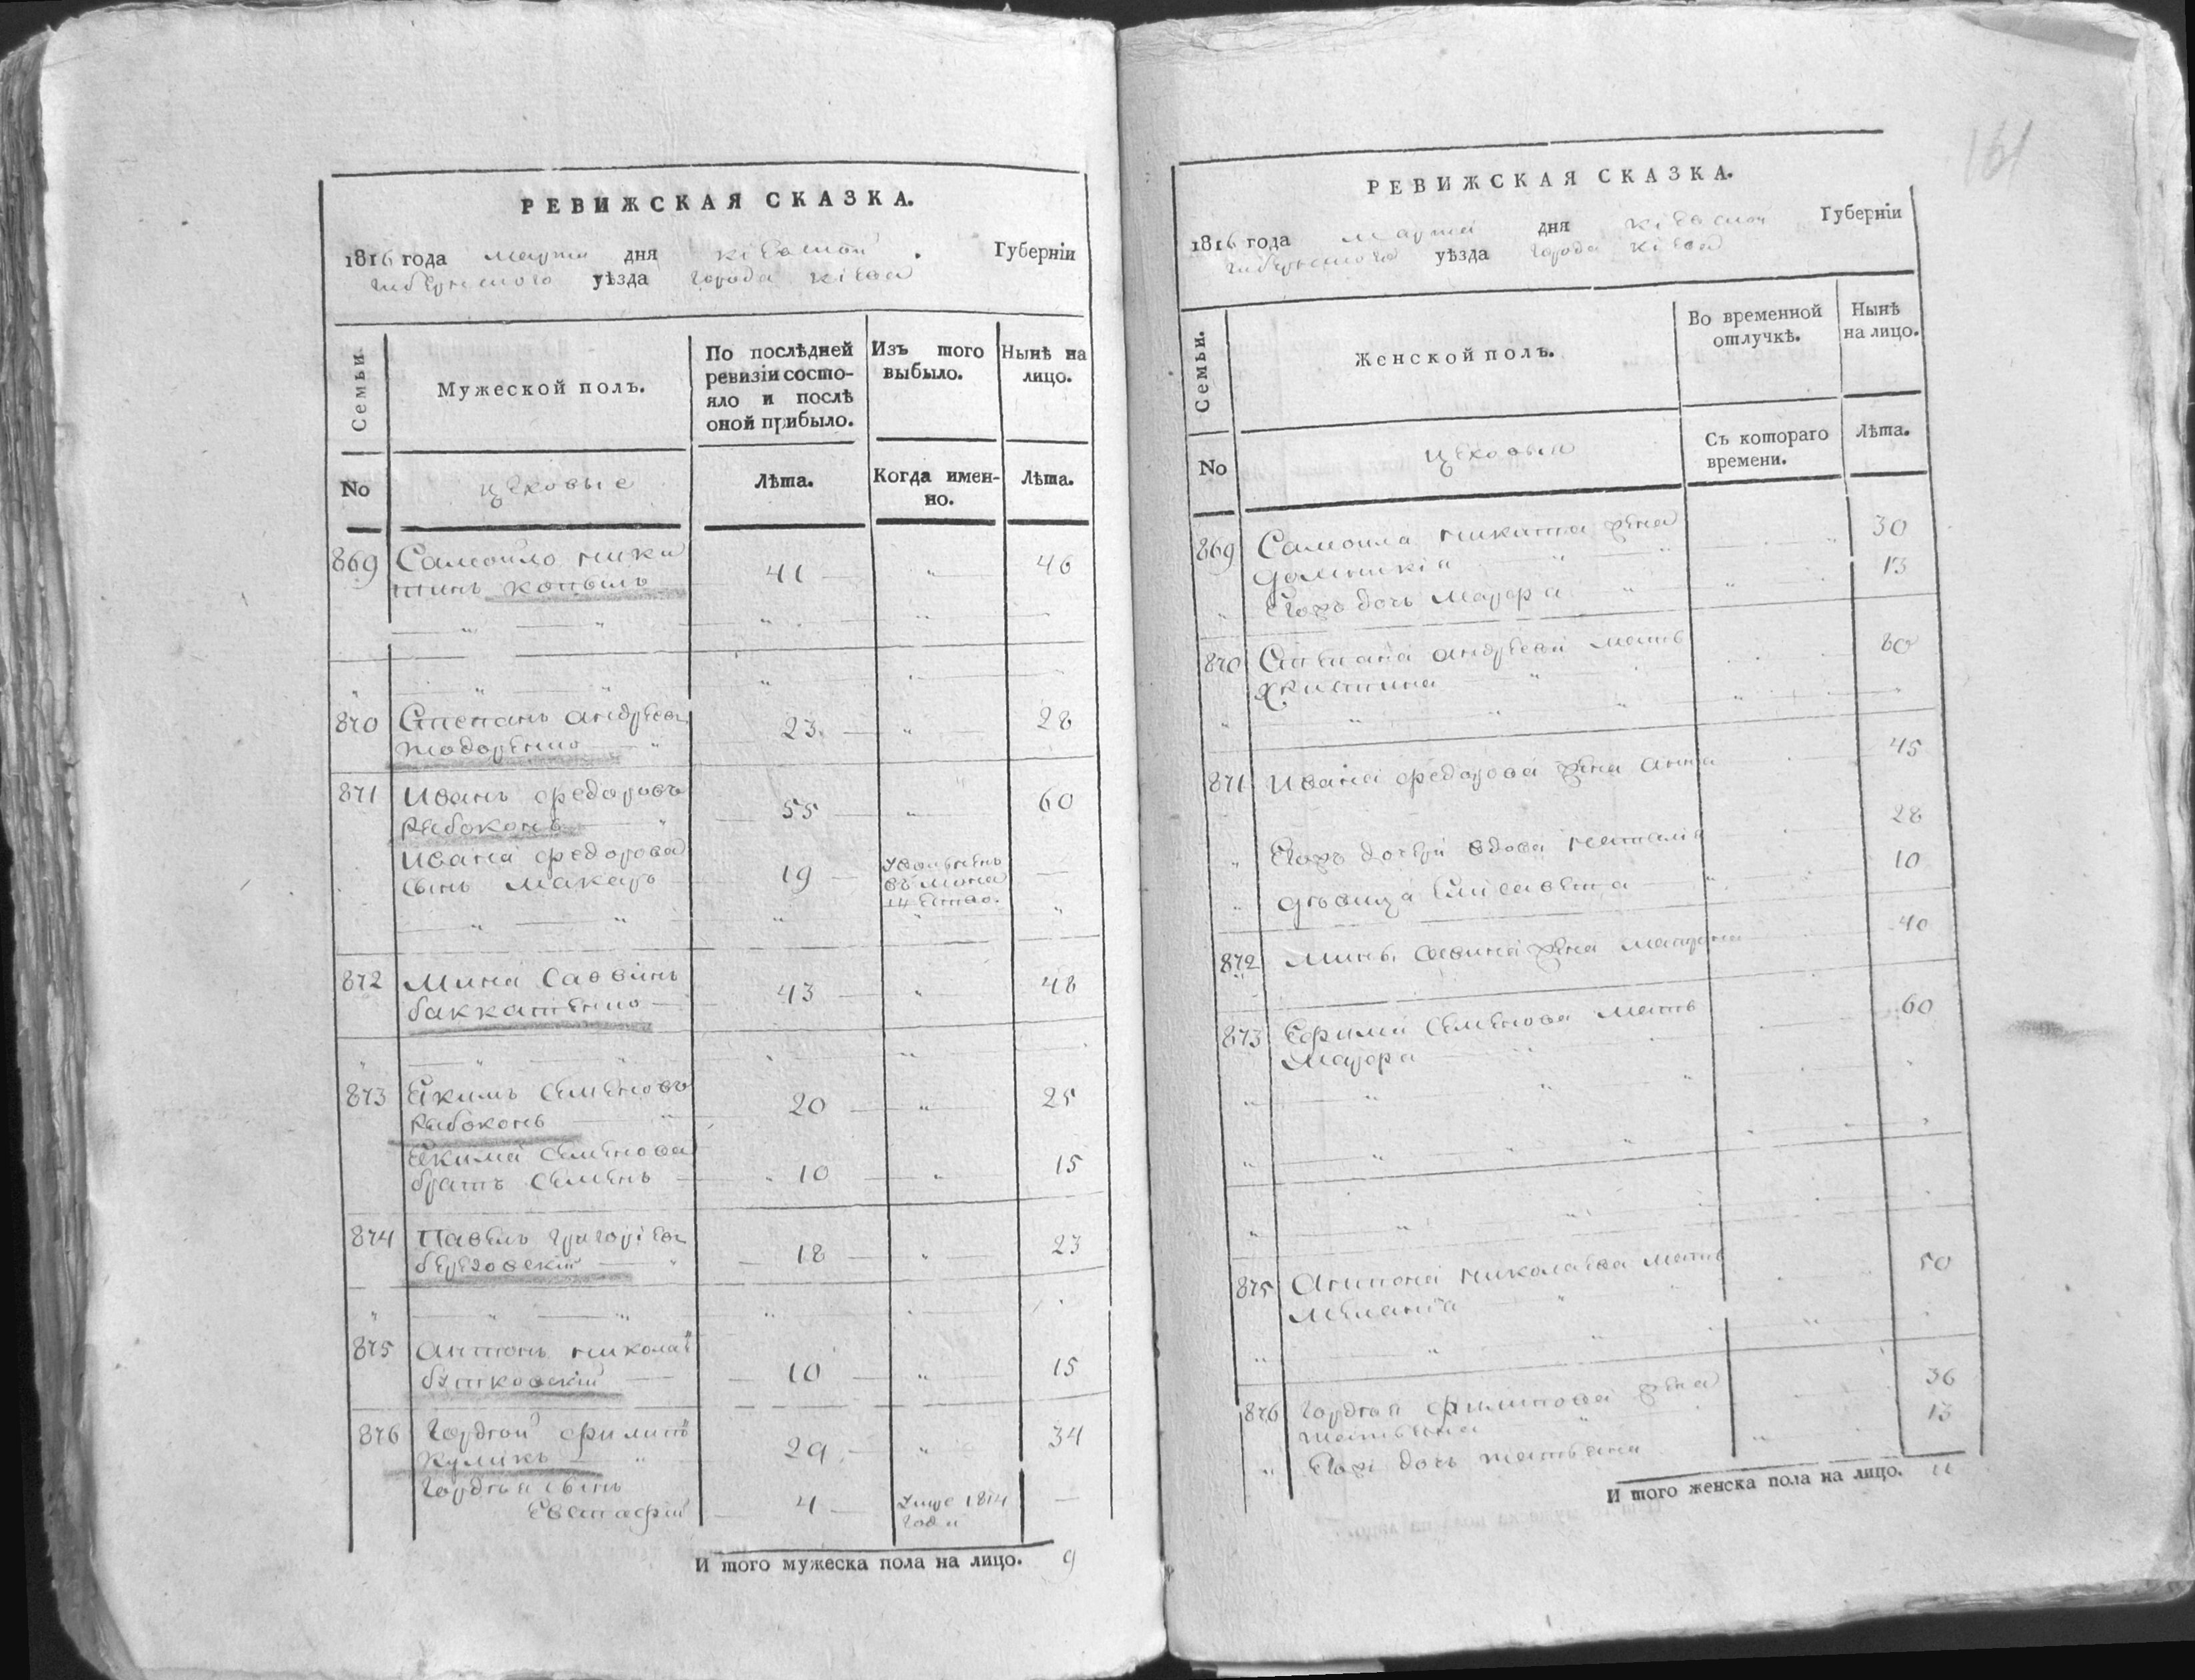 РЕВИЖСКАЯ СКАЗКА.
1816 года марта дня кіевской Губерніи
губернского уѣзда города кіева
Семьи.
Мужеской полъ.
По послѣдней ревизіи состо-
яло и послѣ
оной прибыло.
Изъ того
выбыло.
Нынѣ на
лицо.
No
цеховые
Лѣта.
Когда имен-
но.
Лѣта.
869 Самойло ники
тинъ копыль 41 46
870 Степанъ андреевъ 23 28
тодоренко
871 Иванъ федоровъ 55 60
Рябоконь
Ивана федорова
сынъ Макаръ 19
872 Мина Саввинъ 43 48
873 Екимъ Семеновъ 20 25
Рябоконь
Екима Семенова
братъ Семенъ 10 15
874 Павелъ григоріевъ 18 23
березовскій
875 антонъ николаев 10 15
876 гордѣй филипов 29 34
Куликъ
гордѣя сынъ
Евстафій 4 умре 1814
года
И того мужеска пола на лицо. 9
161
РЕВИЖСКАЯ СКАЗКА.
1816 года марта дня кіевской Губерніи
губернского уѣзда города кіева
Семьи.
Женской полъ.
Во временной
отлучкѣ.
Нынѣ
на лицо.
No
цеховые
Съ котораго
времени.
Лѣта.
869 Самойла никитина жена 30
доминикія
Егожъ дочь Марфа 13
870 Степана андреева мать 60
Христина
871 Ивана федорова жена анна 45
Егожъ дочери вдова наталія 28
дѣвица Елисавета 10
872 Мины савина жена матрона 40
873 Ефима Семенова мать 60
Марфа
875 Антона николаева мать 50
Меланія
876 гордѣя филипова жена 36
татьяна
Егожъ дочь татьяна 13
И того женска пола на лицо. 11